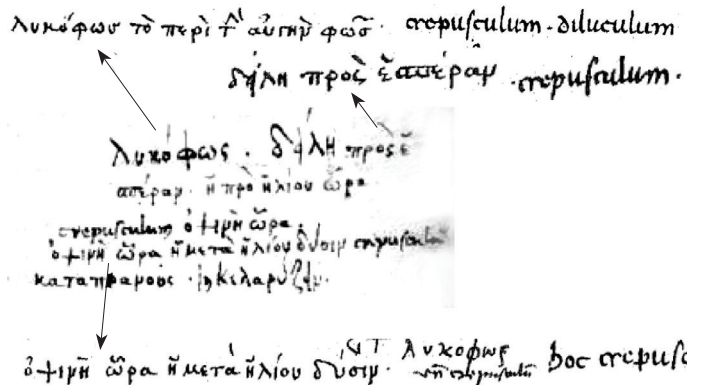 λυκόφως τὸ περὶ τ̀ αὐγὴν φῶς· crepusculum · diluculum
δείλη πρὸς ἑσπέραν · crepusculum ·
λυκόφως · δείλη πρὸς ἑ
σπέραν · ἢ πρὸ ἡλίου ὥρα
crepusculum ὀψινὴ ὥρα.
ὀψινὴ ὥρα ἡ μετὰ ἡλίου δύσιν crepusculum
κελαρύζειν·
λυκοφως
ὀψινὴ ὥρα ἡ μετὰ ἡλίου δύσιν · hoc crepusc